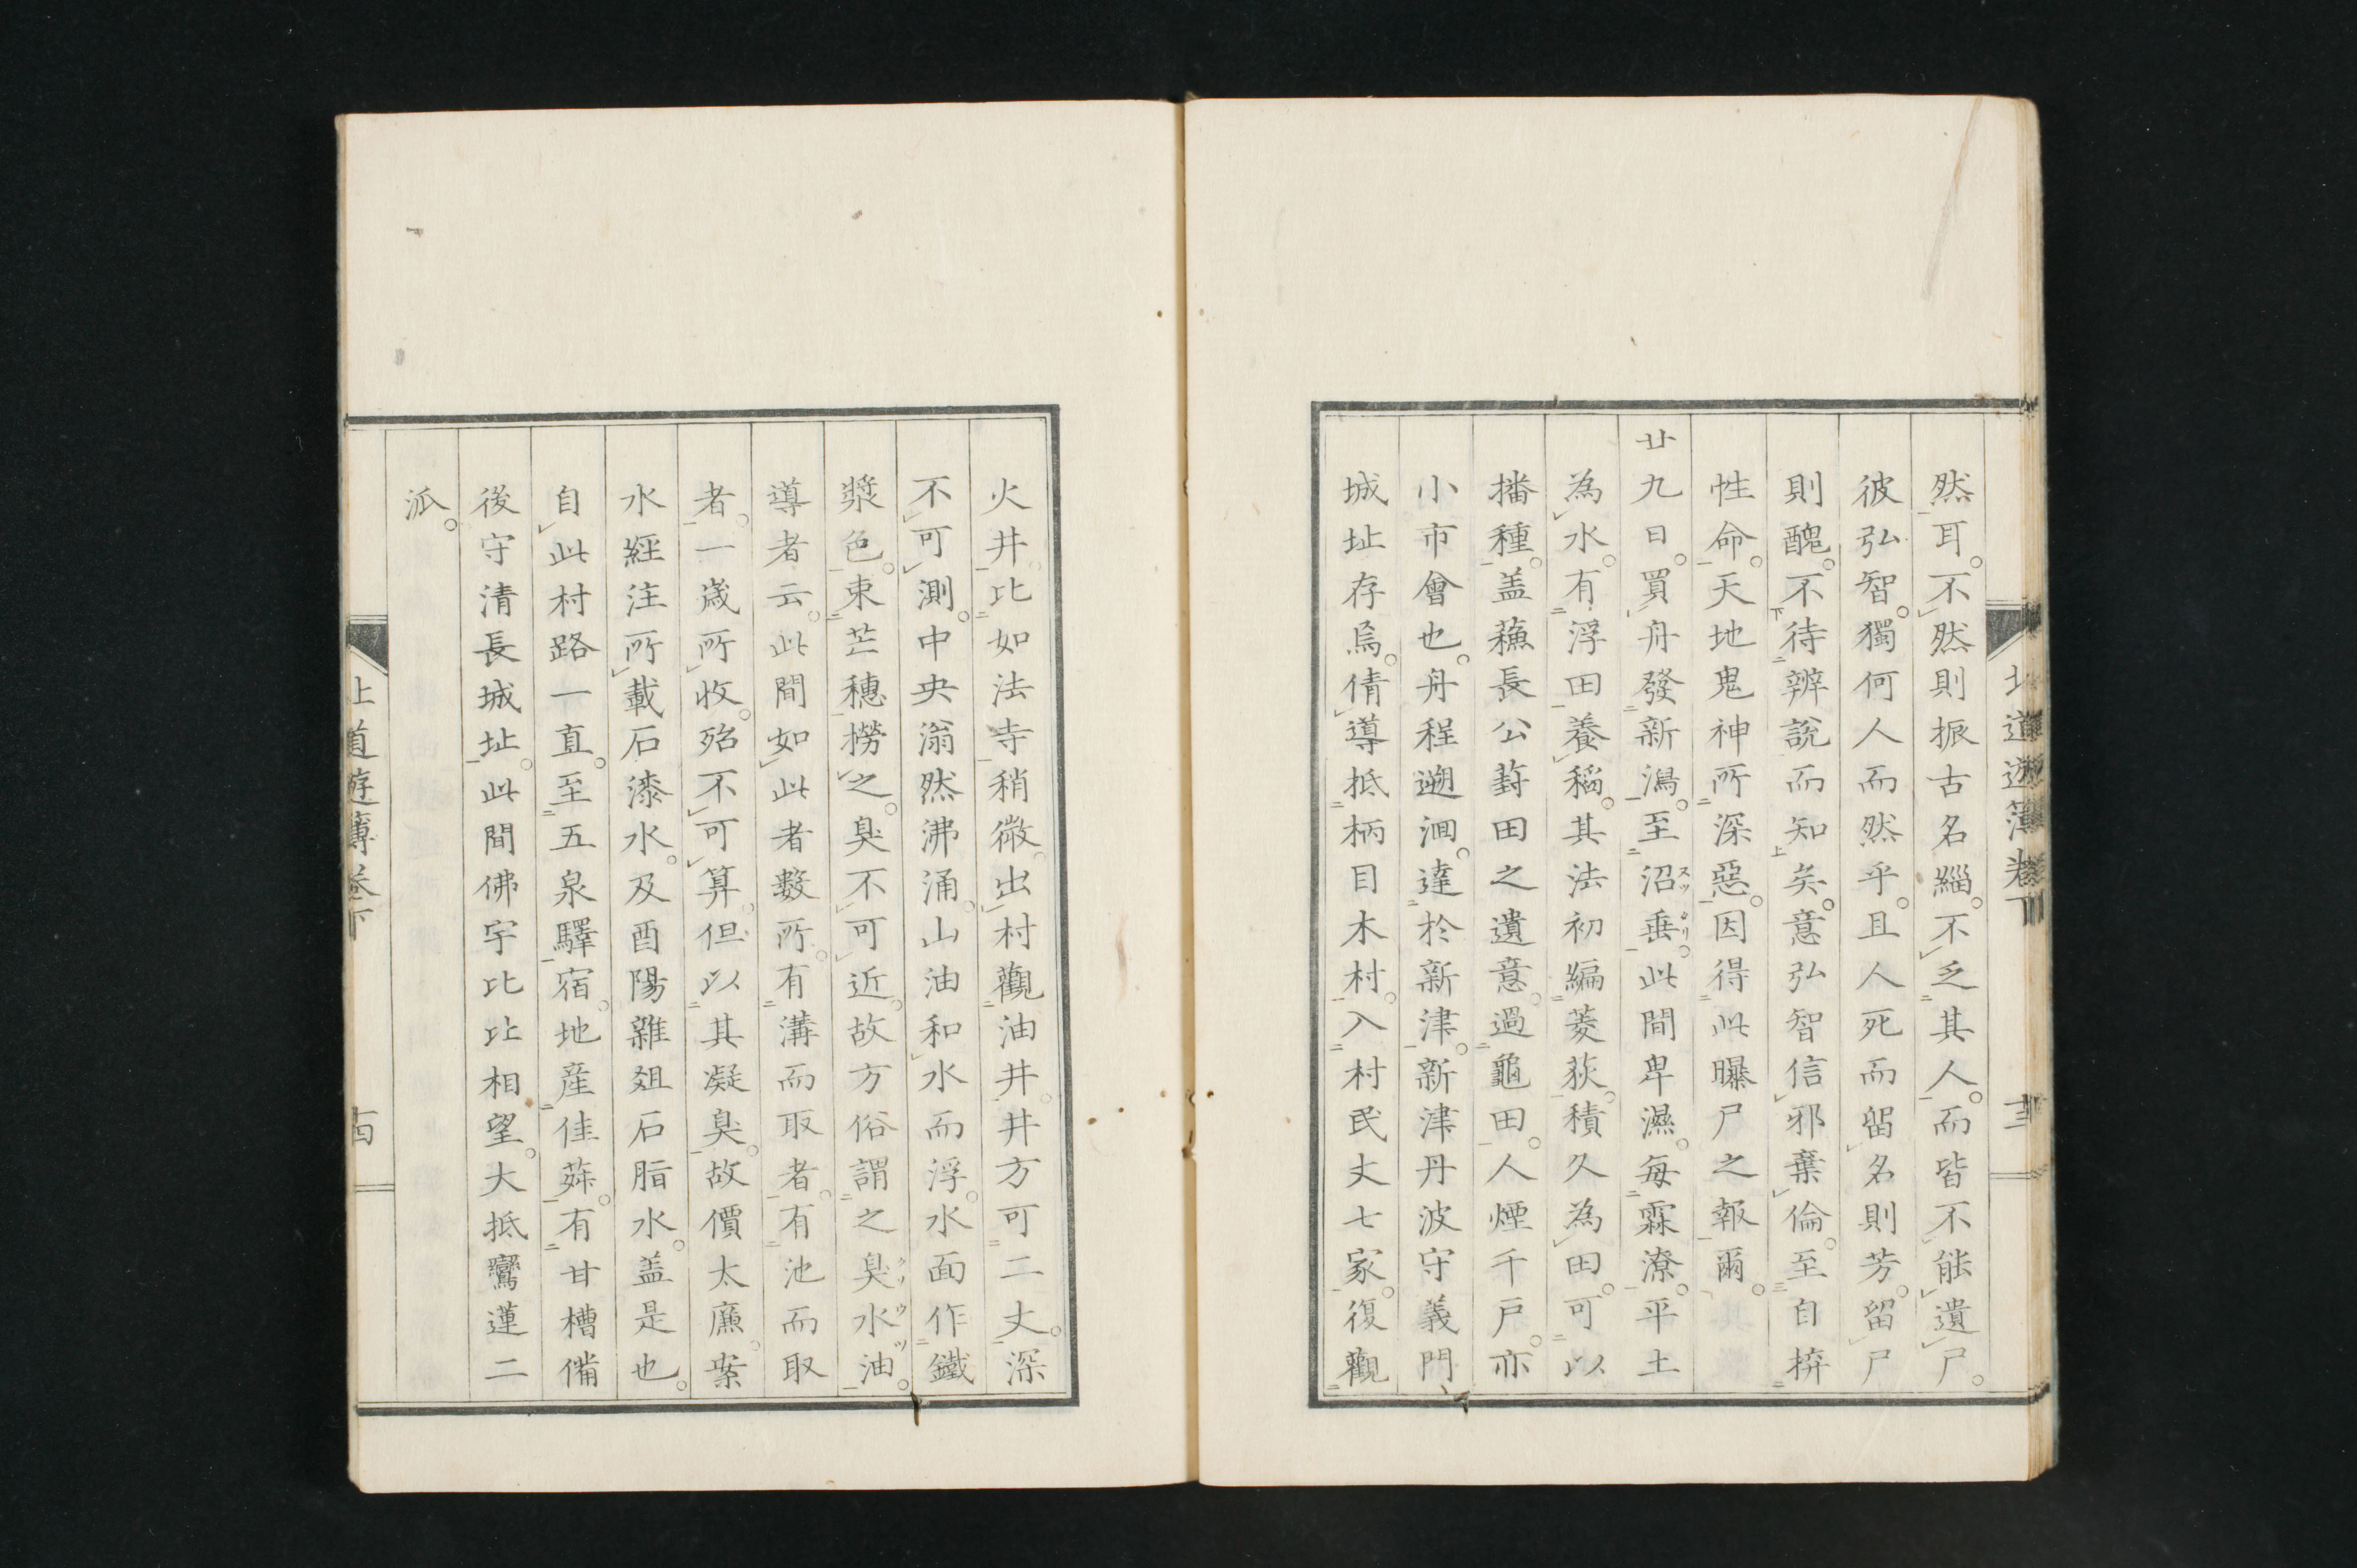 然耳。不然則振古名緇。不乏其人。而皆不能遺尸。
彼弘智。獨何人而然乎。且人死而留名則芳。留尸
則醜。不待辨説而知矣。意弘智信邪棄倫。至自拚
性命。天地鬼神所深惡。因得此曝尸之報爾。
廿九日。買舟發新潟。至沼垂。此間卑濕。每霖潦。平土
為水。有浮田養稻。其法初編菱荻。積久為田。可以
播種。盖蘓長公葑田之遺意。過龜田。人煙千戶。亦
小市會也。舟程遡洄。達於新津。新津丹波守義門
城址存焉。倩導抵柄目木村。入村民丈七家。復觀
北道遊簿卷下 十三
火井。比如法寺稍微。出村觀油井。井方可二丈。深
不可測。中央滃然沸涌。山油和水而浮。水面作鐵
漿色。束芒穗撈之。臭不可近。故方俗謂之臭水油。
導者云。此間如此者數所。有溝而取者。有池而取
者。一歳所收。殆不可算。但以其凝臭。故價太廉。案
水經注所載石漆水。及酉陽雜俎石脂水。盖是也。
自此村路一直。至五泉驛宿。地産佳蕣。有甘槽備
後守清長城址。此間佛宇比比相望。大抵鸞蓮二
派。
北道遊簿卷下 十四